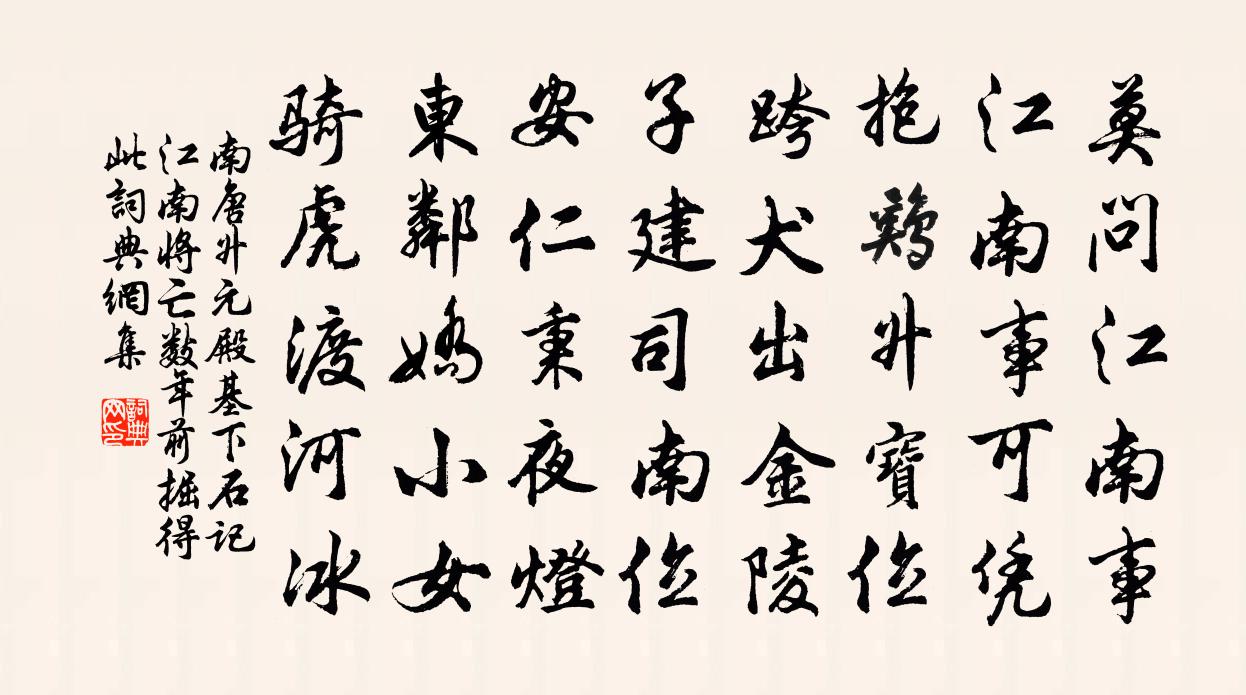 莫問江南事
江南事可凭
抱鷄升寶位
跨犬出金陵
子建司南位
安仁秉夜燈
東鄰嬌小女
騎虎渡河冰
南唐升元殿基下石記
江南將亡數年前掘得
此詞典網集
詞典網印